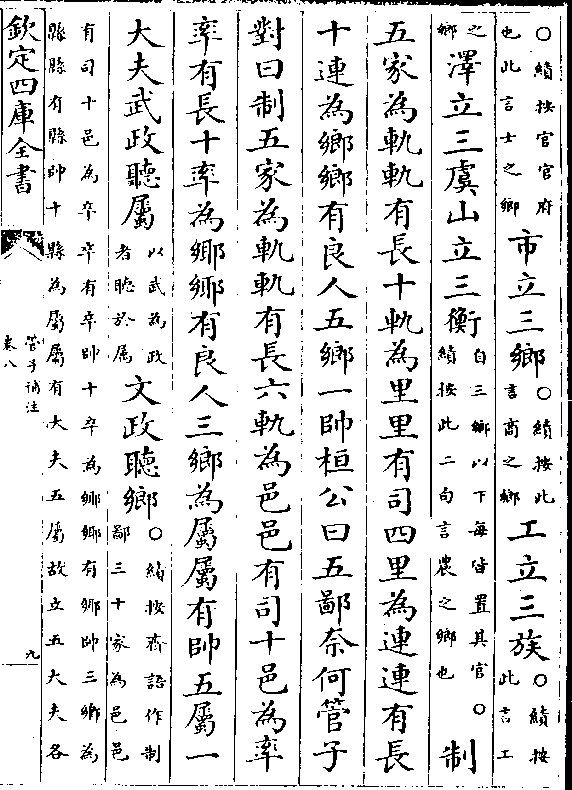 ○績按官官府也此言士之鄉市立三鄉○績按此言商之鄉工立三族○績按此言工
之鄉澤立三虞山立三衡自三鄉以下每皆置其官○績按此二句言農之鄉也制
五家為軌軌有長十軌為里里有司四里為連連有長
十連為鄉鄉有良人五鄉一帥桓公曰五鄙奈何管子
對曰制五家為軌軌有長六軌為邑邑有司十邑為率
率有長十率為鄉鄉有良人三鄉為屬屬有帥五屬一
大夫武政聽屬以武為政者聽於屬文政聽鄉○績按齊語作制鄙三十家為邑邑
有司十邑為卒卒有卒帥十卒為鄉鄉有鄉帥三鄉為
縣縣有縣帥十縣為屬屬有大夫五屬故立五大夫各
欽定四庫全書
管子補注
卷八
九